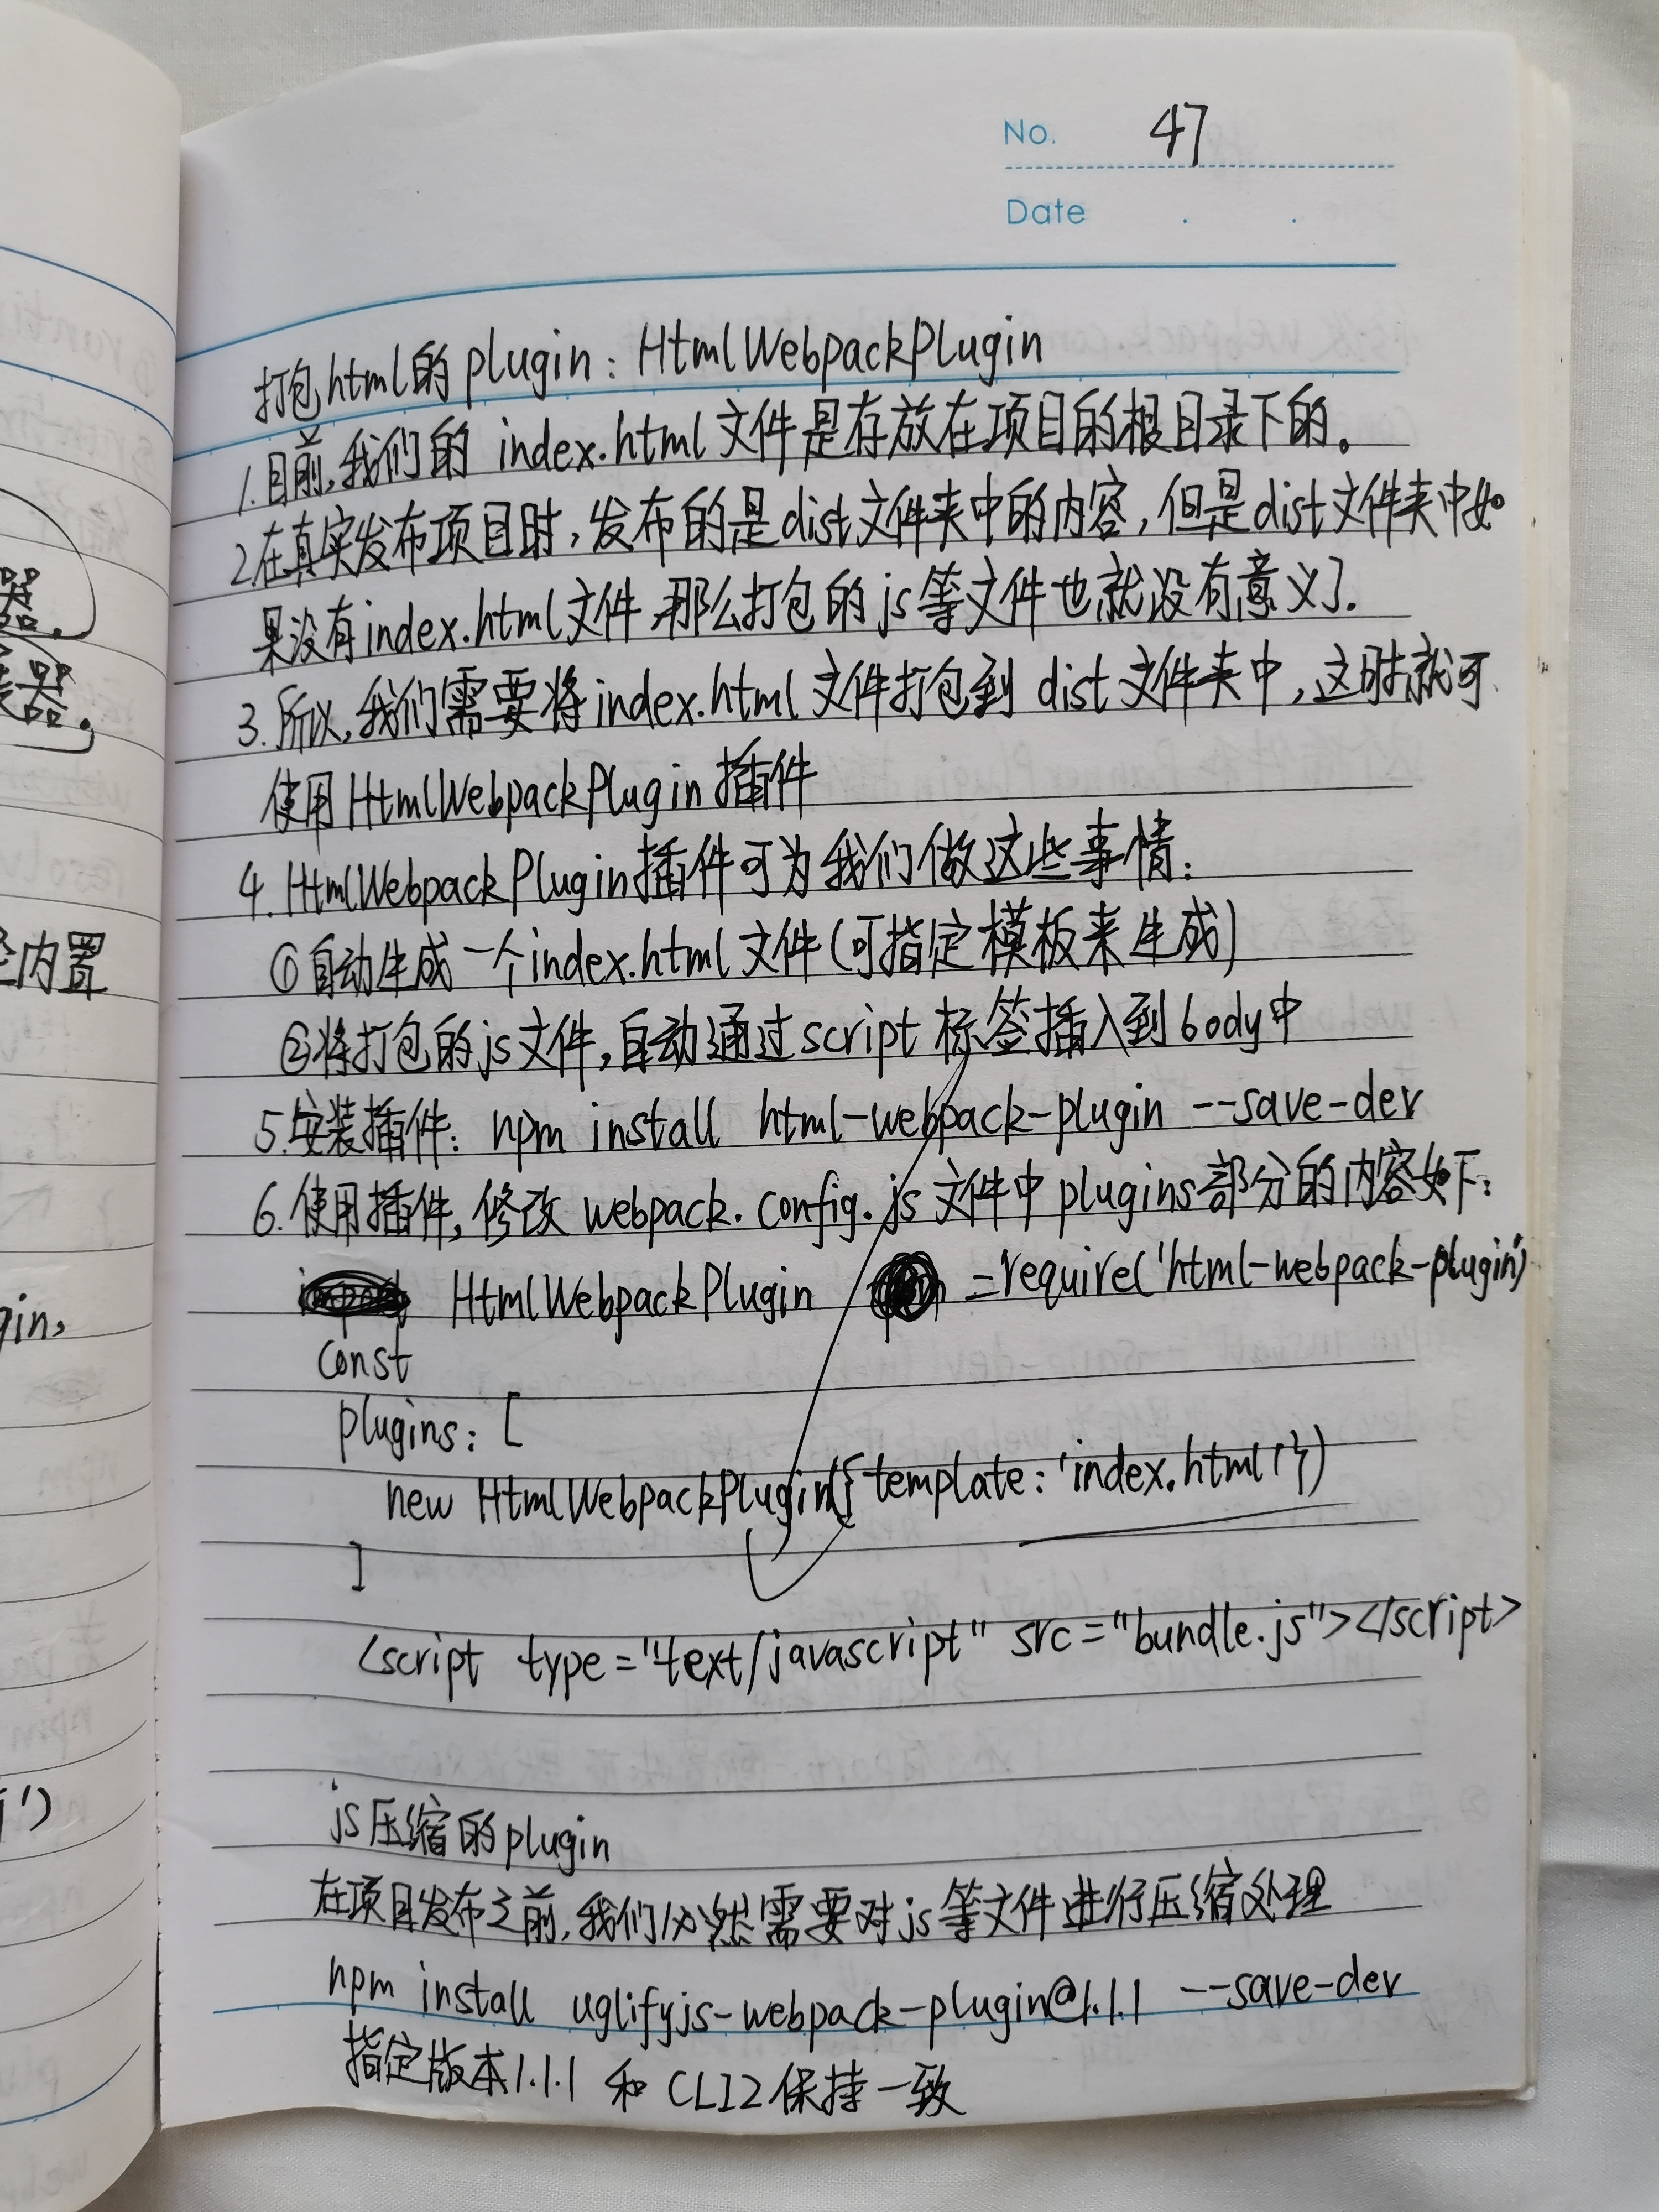 No. 47
Date . .
打包html的plugin：HtmlWebpackPlugin
1.目前,我们的 index.html文件是存放在项目的根目录下的。
2.在真实发布项目时,发布的是dist文件夹中的内容,但是dist文件夹中如
果没有index.html文件,那么打包的js等文件也就没有意义了.
3.所以,我们需要将index.html文件打包到 dist文件夹中,这时就可
使用HtmlWebpackPlugin插件
4.HtmlWebpackPlugin插件可为我们做这些事情:
①自动生成一个index.html文件(可指定模板来生成)
②将打包的js文件,自动通过script标签插入到body中
5.安装插件: npm install html-webpack-plugin --save-dev
6.使用插件,修改 webpack.config.js文件中plugins部分的内容如下:
HtmlWebpackPlugin =require('html-webpack-plugin')
const
plugins: [
new HtmlWebpackPlugin({template:'index.html'})
]
<script type="text/javascript" src="bundle.js"></script>
js压缩的plugin
在项目发布之前,我们必然需要对js等文件进行压缩处理
npm install uglifyjs-webpack-plugin@1.1.1 --save-dev
指定版本1.1.1 和CLI2保持一致
器.
器.
内置
gin,
')